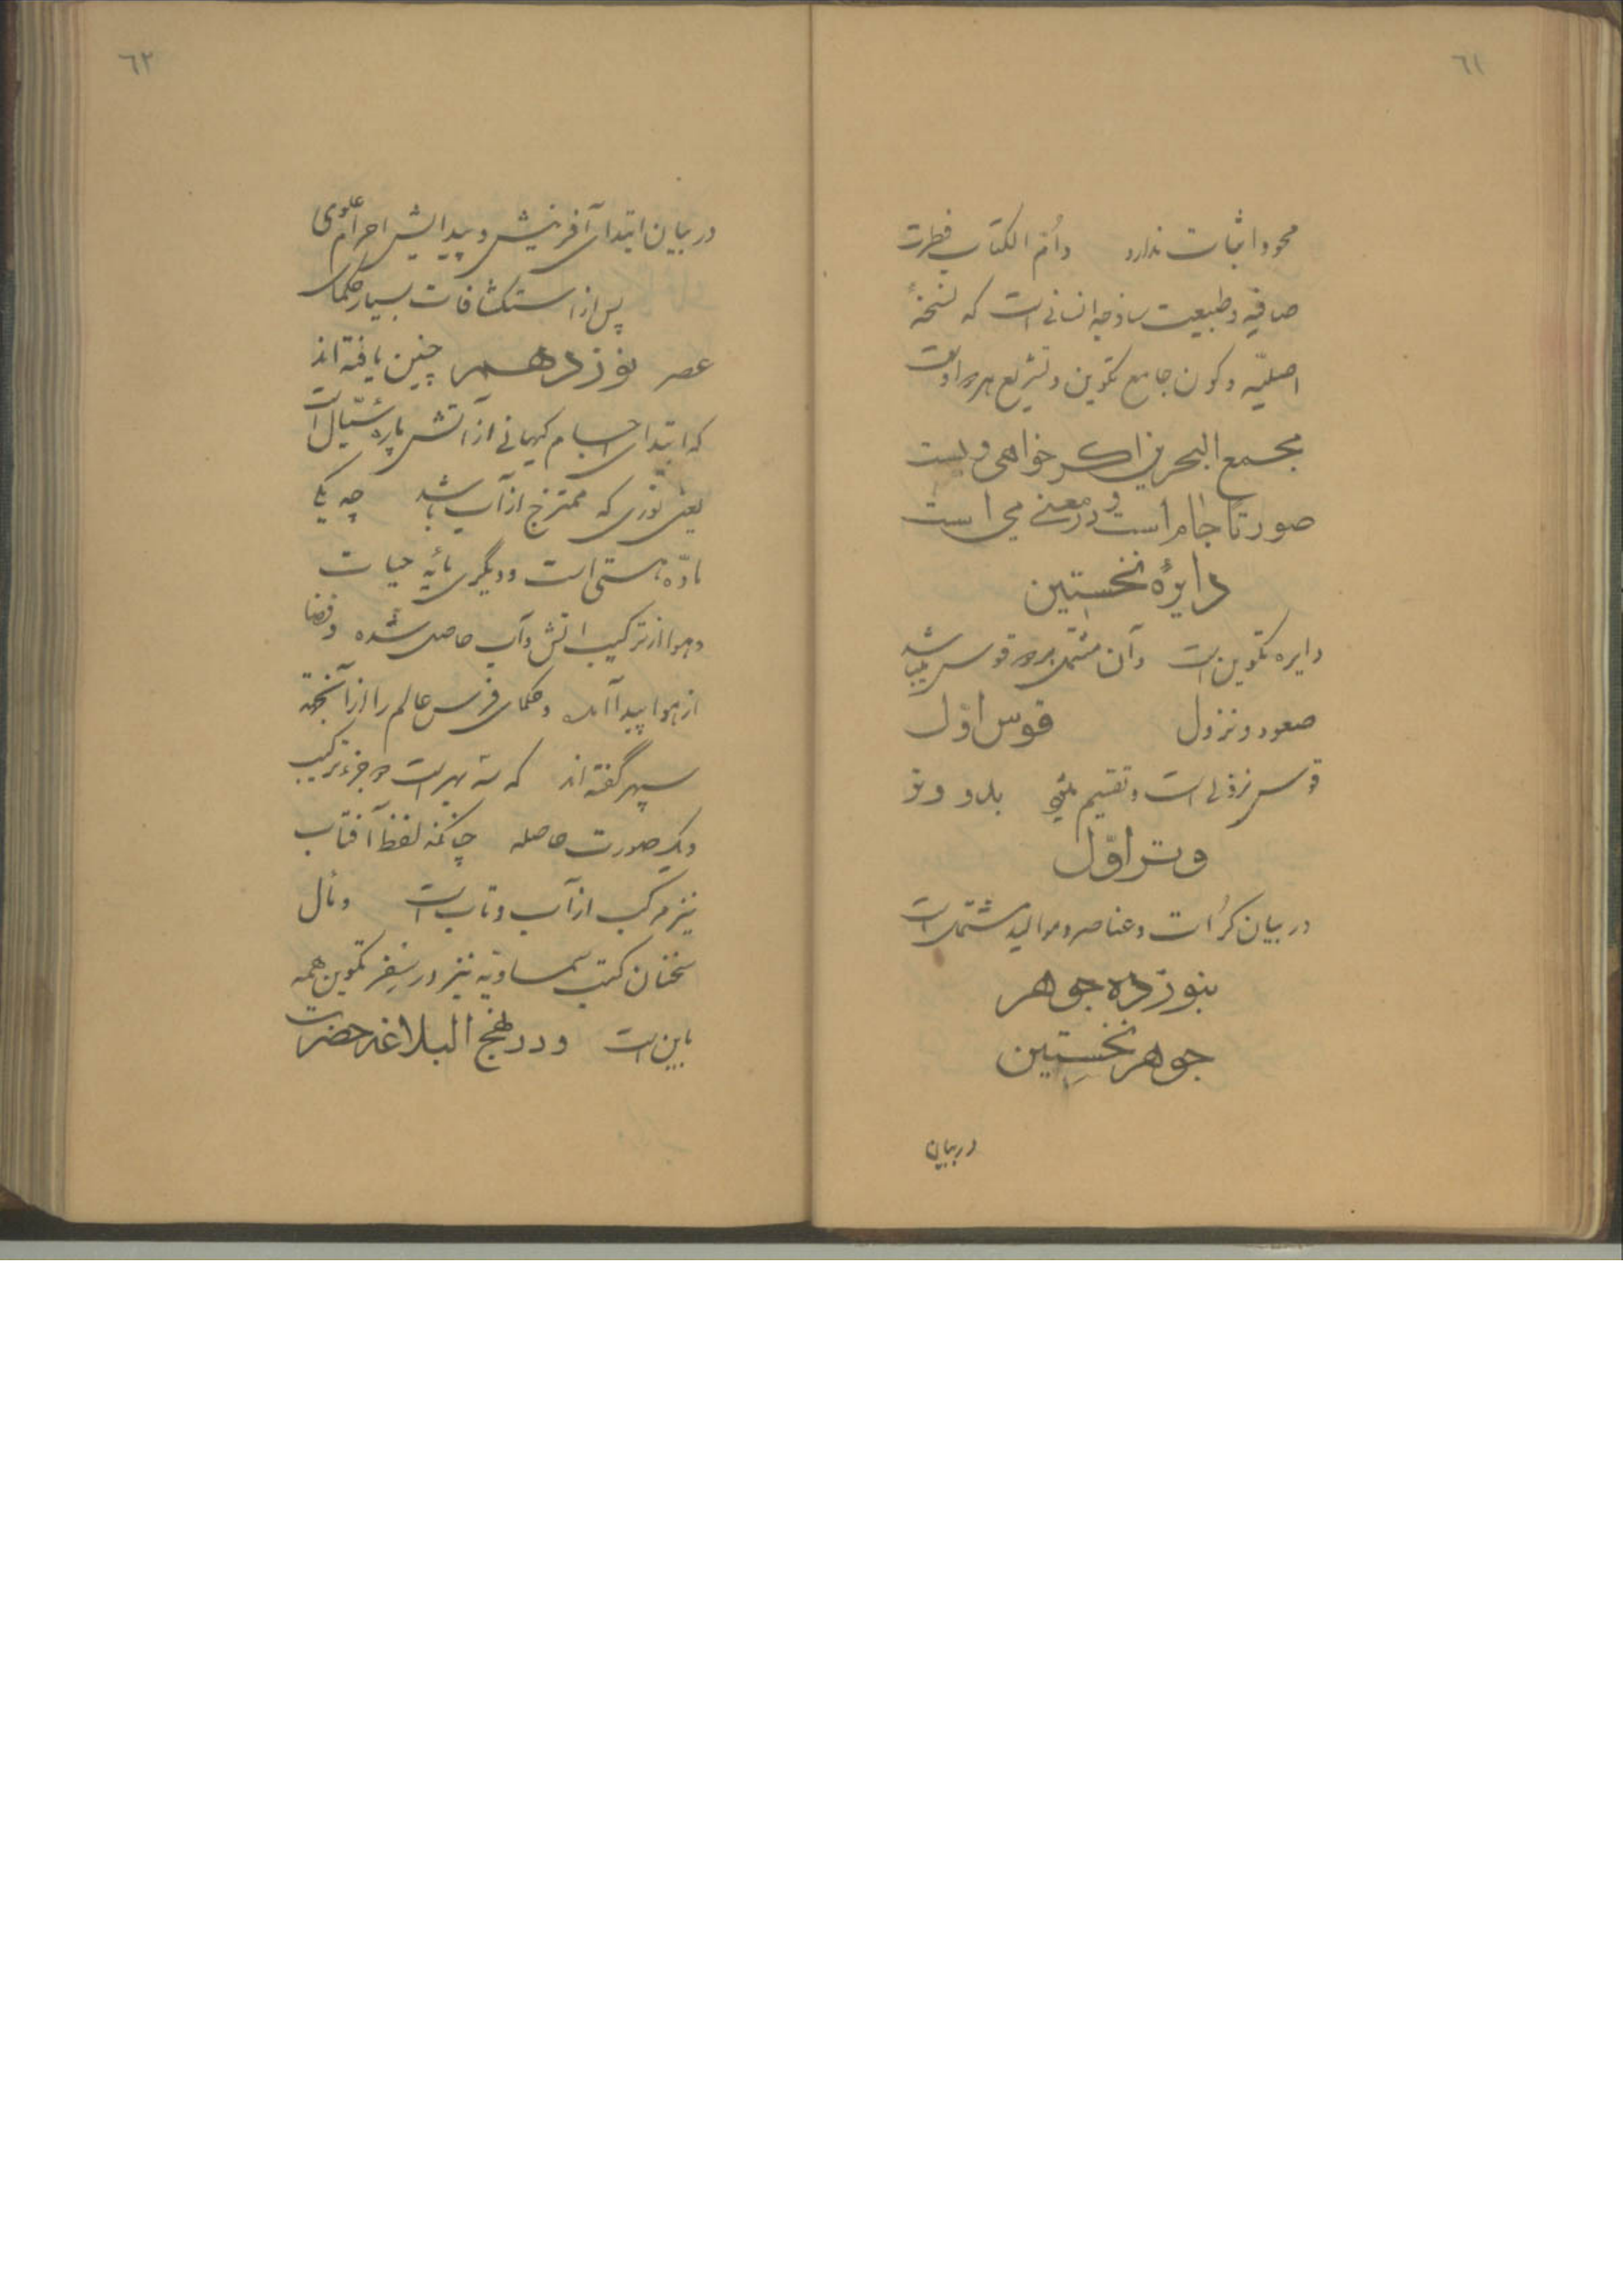 ٦١
محو و اثبات ندارد و اُم الکتاب فطرت
صافیه و طبیعت ساذجه انسانی است که نسخهٔ
اصلیّه و کون جامع تکوین و تشریع هر دو اوست
مجمع البحرین اکر خواهی ویست
صورتا جام است و در معنے می است
دایرهٔ نخستین
دایره تکوین است و آن مشتمل بر دو قوس میباشد
صعود و نزول قوس اوّل
قوس نزولی است و تقسیم میشود بدو وتر
وتر اوّل
در بیان کرُات و عناصر و موالید مشتمل است
بنوزده جوهر
جوهر نخستین
در بیان
٦٢
در بیان ابتدای آفرینش و پیدایش اجرام علوی
پس از استکشافات بسیار حکمای
عصر نوزدهم چنین یافته اند
که ابتدای اجسام کیهانی از آتش پاره سیّال است
یعنی نوری که ممتزج از آب باشد چه یکی
مادّه هستی است و دیگری مایه حیات
و هوا از ترکیب اتش و آب حاصل شده و فضا
از هوا پیدا آمد و حکمای فرس عالم را از آنجهة
سپهر گفته اند که سه بهر است دو جزء ترکیب
و یک صورت حاصله چنانکه لفظ آفتاب
نیز مرکب از آب و تاب است و مآل
سخنان کتب سماویّه نیز در سِفر تکوین همه
باین است و در نهج البلاغه حضرت